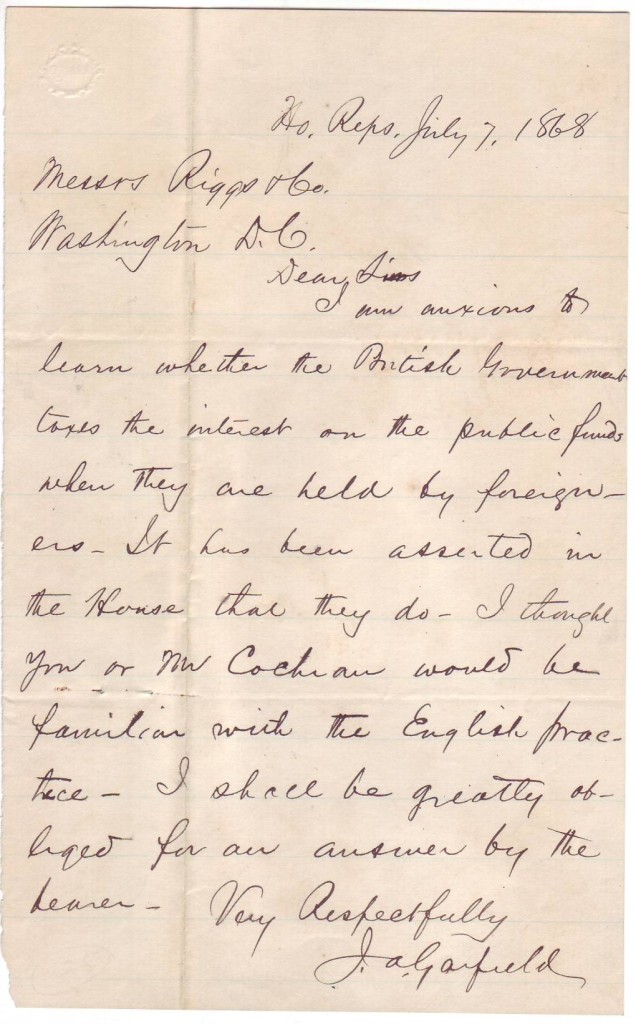 Ho. Reps. July 7, 1868
Messrs Riggs & Co.
Washington D.C.
Dear Sirs
I am anxious to
learn whether the British Government
taxes the interest on the public funds
when they are held by foreign-
ers - It has been asserted in
the House that they do - I thought
you or Mr Cochran would be
familiar with the English prac-
tice - I shall be greatly ob-
liged for an answer by the
bearer -
Very Respectfully
J. A. Garfield